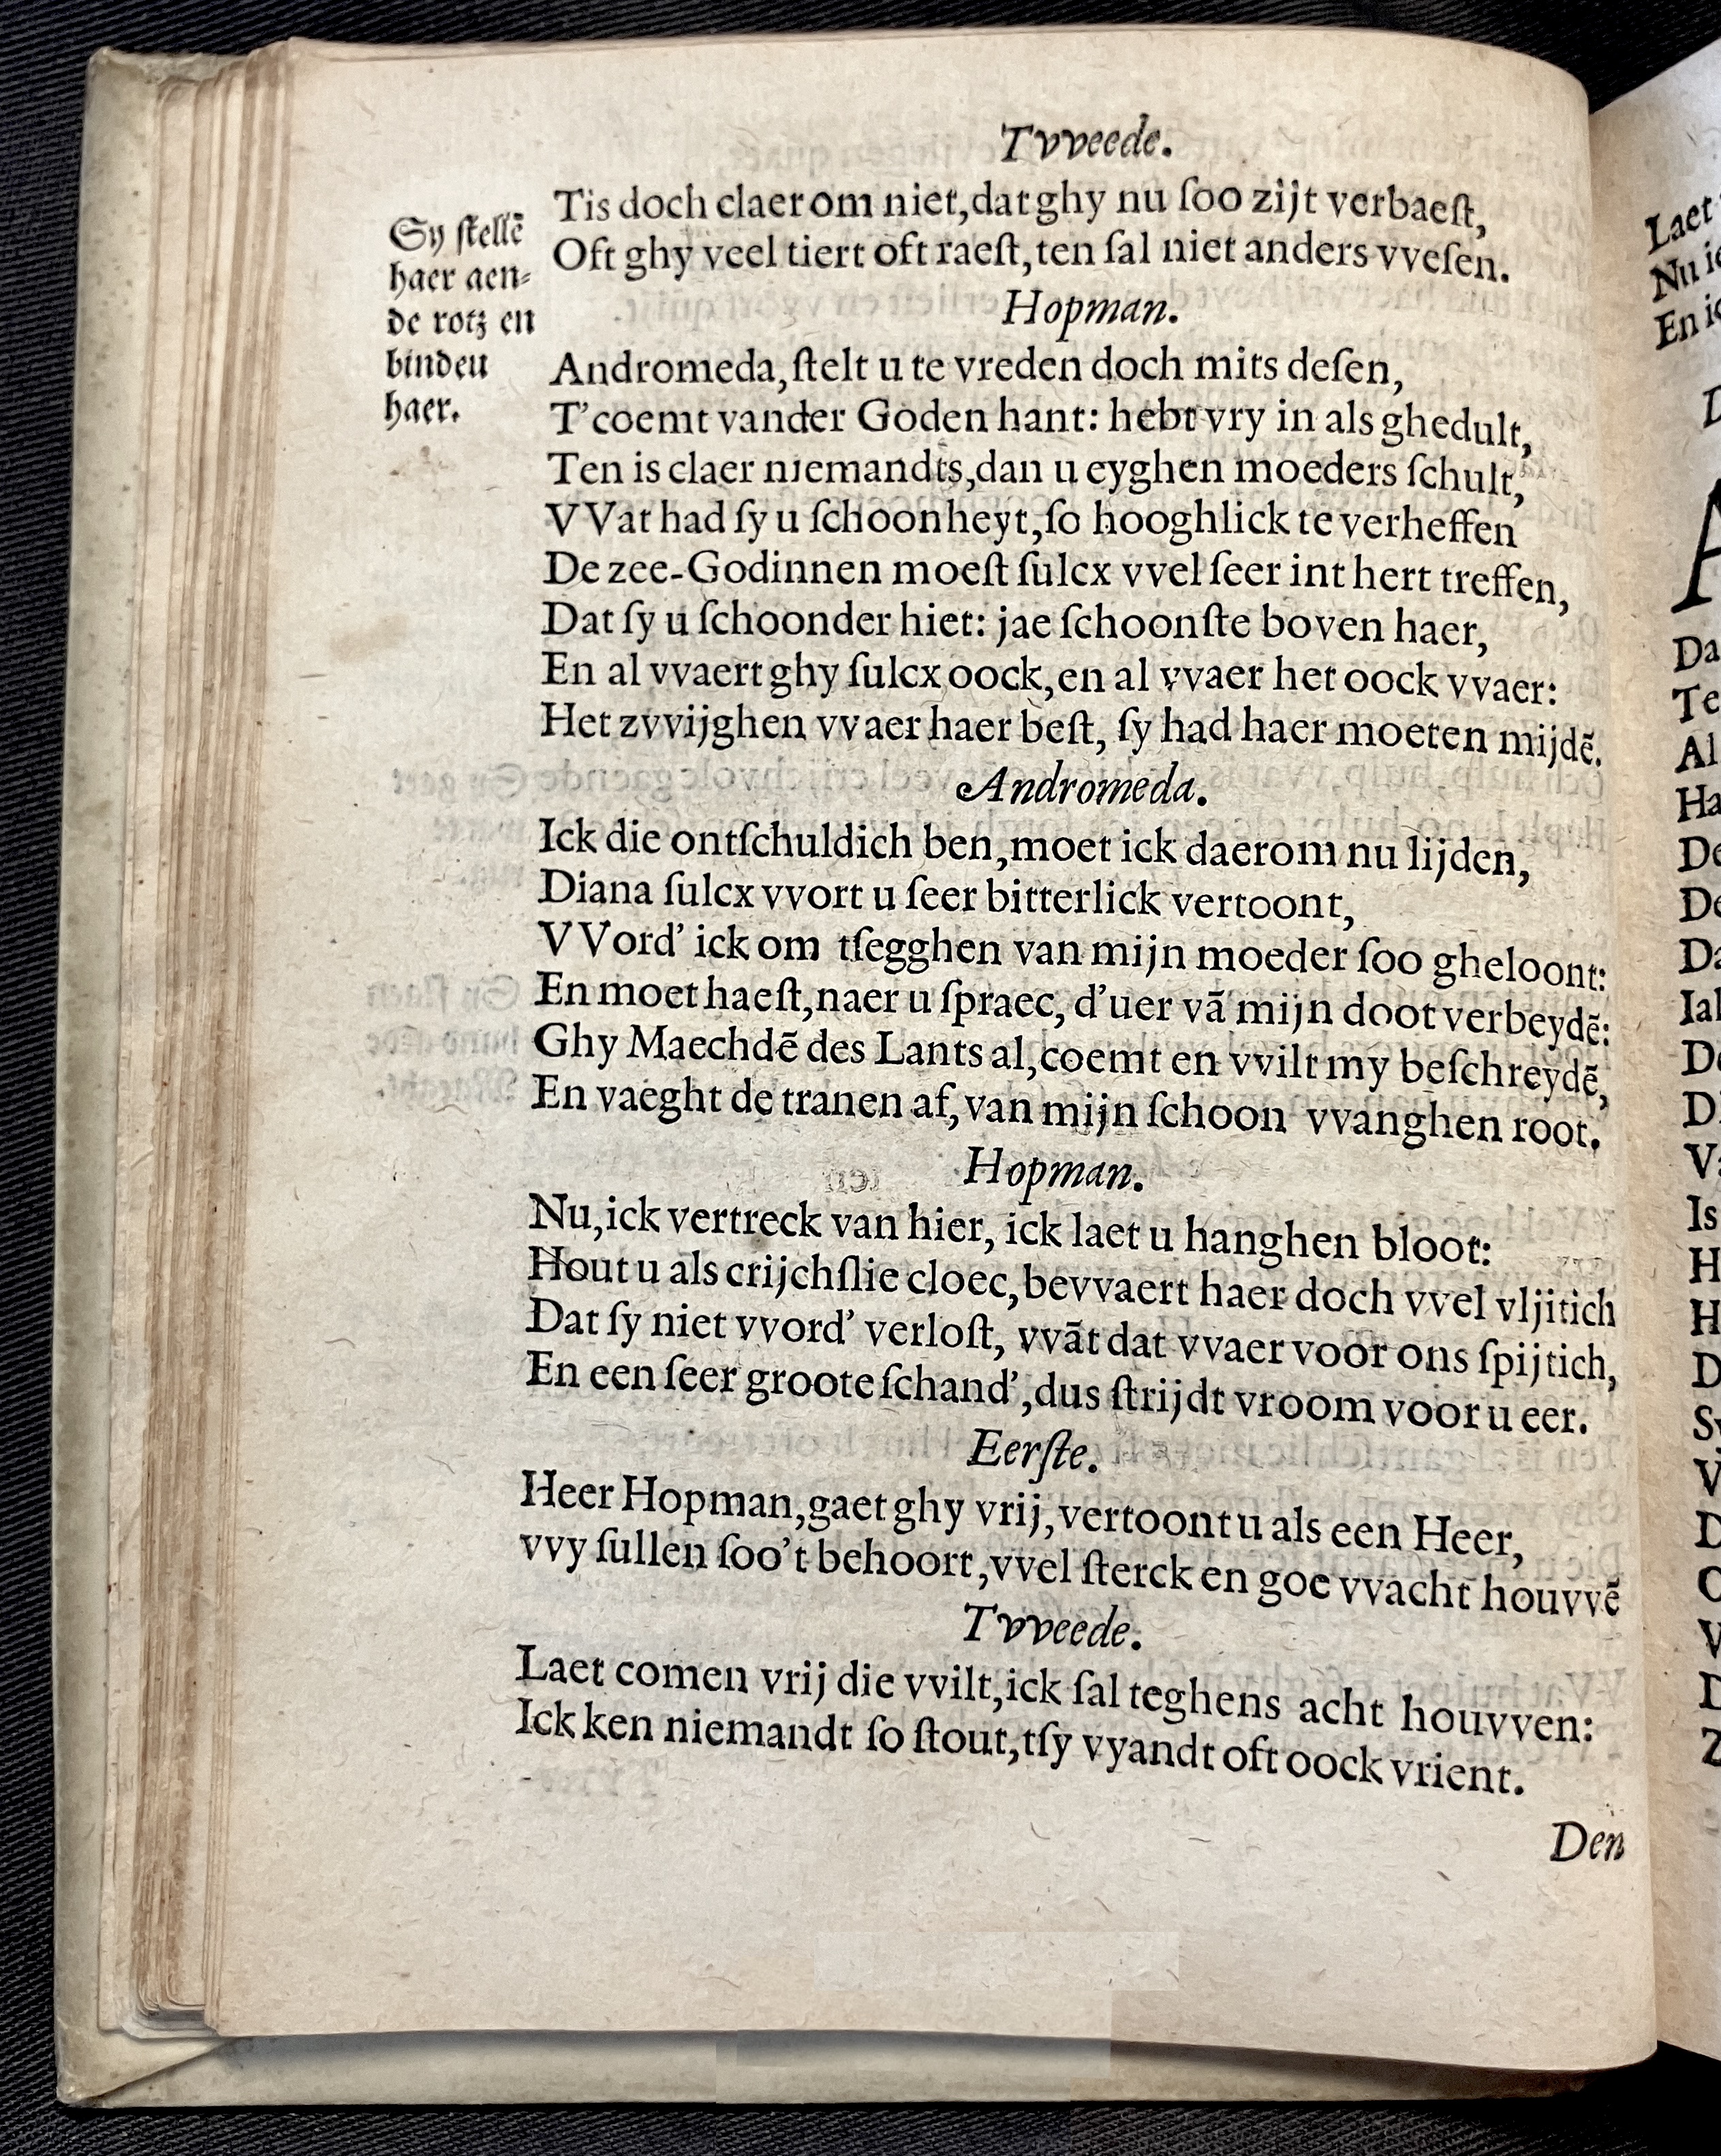 Tvveede.
Tis doch claer om niet, dat ghy nu ſoo zijt verbaeſt,
Oft ghy veel tiert oft raeſt, ten ſal niet anders vveſen.
Sy ſtellē
haer aen⸗
de rotz en
binden
haer.
Hopman.
Andromeda, ſtelt u te vreden doch mits deſen,
T'coemt vander Goden hant: hebt vry in als ghedult,
Ten is claer niemandts, dan u eyghen moeders ſchult,
VVat had ſy u ſchoonheyt, ſo hooghlick te verheffen
De zee-Godinnen moeſt ſulcx vvel ſeer int hert treffen,
Dat ſy u ſchoonder hiet: jae ſchoonſte boven haer,
En al vvaert ghy ſulcx oock, en al vvaer het oock vvaer:
Het zvvijghen vvaer haer beſt, ſy had haer moeten mijdē.
Andromeda.
Ick die ontſchuldich ben, moet ick daerom nu lijden,
Diana ſulcx vvort u ſeer bitterlick vertoont,
VVord' ick om tſegghen van mijn moeder ſoo gheloont:
En moet haeſt, naer u ſpraec, d'uer vā mijn doot verbeydē:
Ghy Maechdē des Lants al, coemt en vvilt my beſchreydē,
En vaeght de tranen af, van mijn ſchoon vvanghen root.
Hopman.
Nu, ick vertreck van hier, ick laet u hanghen bloot:
Hout u als crijchſlie cloec, bevvaert haer doch vvel vljitich
Dat ſy niet vvord' verloſt, vvāt dat vvaer voor ons ſpijtich,
En een ſeer groote ſchand', dus ſtrijdt vroom voor u eer.
Eerſte.
Heer Hopman, gaet ghy vrij, vertoont u als een Heer,
vvy ſullen ſoo't behoort, vvel ſterck en goe vvacht houvvē
Tvveede.
Laet comen vrij die vvilt, ick ſal teghens acht houvven:
Ick ken niemandt ſo ſtout, tſy vyandt oft oock vrient.
Den
Laet
Nu
En
Da
Te
Al
Ha
De
De
Da
Ial
De
D
Va
Is
H
H
D
Sy
V
D
V
D
Z